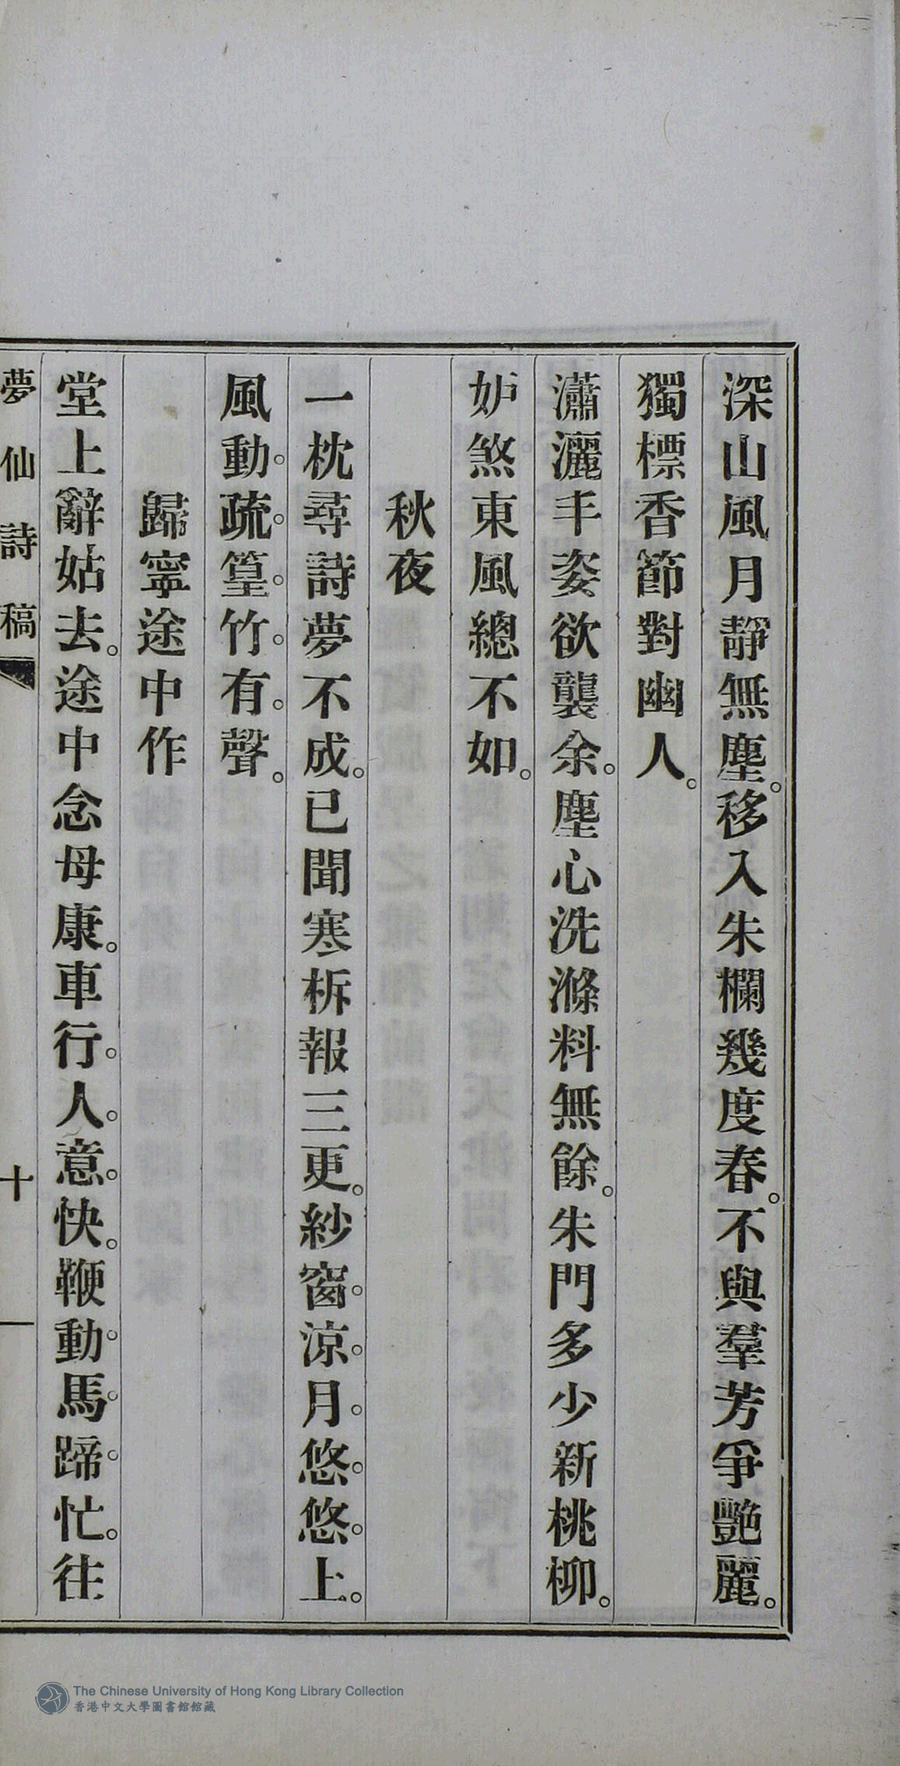 深山風月靜無塵。移入朱欄幾度春。不與羣芳爭艷麗。
獨標香節對幽人。
瀟灑手姿欲襲余。塵心洗滌料無餘。朱門多少新桃柳。
妒煞東風總不如。
秋夜
一枕尋詩夢不成。已聞寒柝報三更。紗窗涼月悠悠上。
風動疏篁竹有聲。
歸寧途中作
堂上辭姑去。途中念母康。車行人意快。鞭動馬蹄忙。往
夢仙詩稿
十一
The Chinese University of Hong Kong Library Collection
香港中文大學圖書館館藏